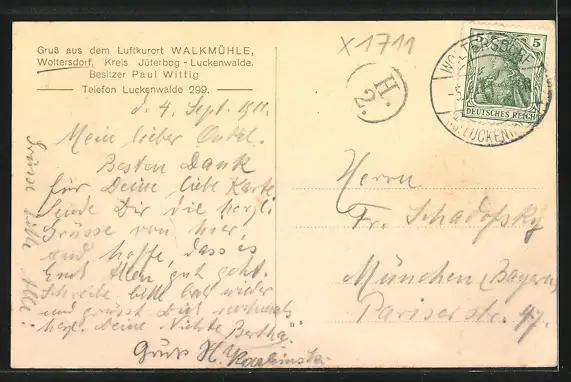 Gruß aus dem Luftkurort WALKMÜHLE,
Woltersdorf, Kreis Jüterbog - Luckenwalde.
Besitzer Paul Wittig
Telefon Luckenwalde 299.
X1711
H.
2.
WOLTERSDORF
LUCKENW
5
DEUTSCHES REICH
d. 4. Sept. 1911.
Mein lieber Onkel.
Besten Dank
für Deine liebe Karte
sende Dir die herzl.
Grüsse von hier
und hoffe, dass es
Euch Allen gut geht.
Schreibe bitte bald wieder
und grüsst Dich nochmals
herzl. Deine Nichte Bertha.
Gruss H.
Grüsse Alle
Herrn
Fr. Schadofsky
München (Bayern)
Pariserstr. 47.